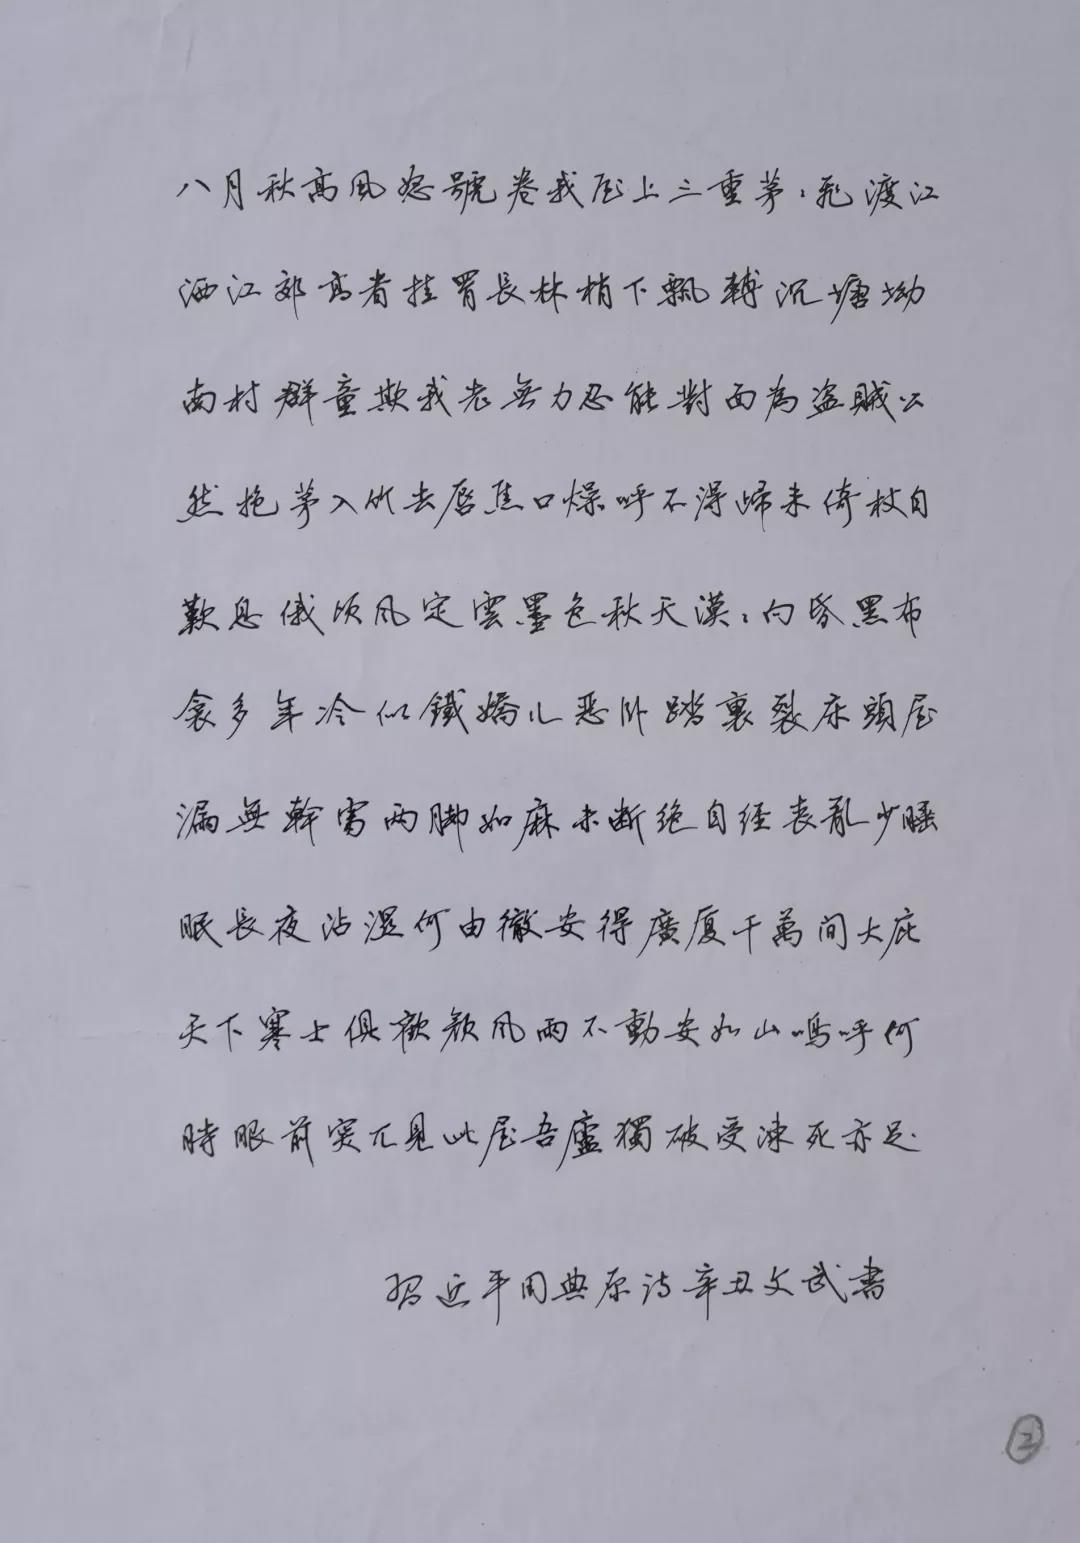 八月秋高風怒號卷我屋上三重茅:飛渡江
洒江郊高者挂罥長林梢下飄轉沉塘坳
南村群童欺我老無力忍能對面為盗賊公
然抱茅入竹去唇焦口燥呼不得歸来倚杖自
歎息俄頃風定雲墨色秋天漠:向昏黑布
衾多年冷似鐵嬌儿惡卧踏裏裂床頭屋
漏無幹處雨脚如麻未斷絶自經喪亂少睡
眠長夜沾濕何由徹安得廣厦千萬間大庇
天下寒士俱歡顔風雨不動安如山嗚呼何
時眼前突兀見此屋吾廬獨破受凍死亦足.
習近平用典原诗辛丑文武書
2